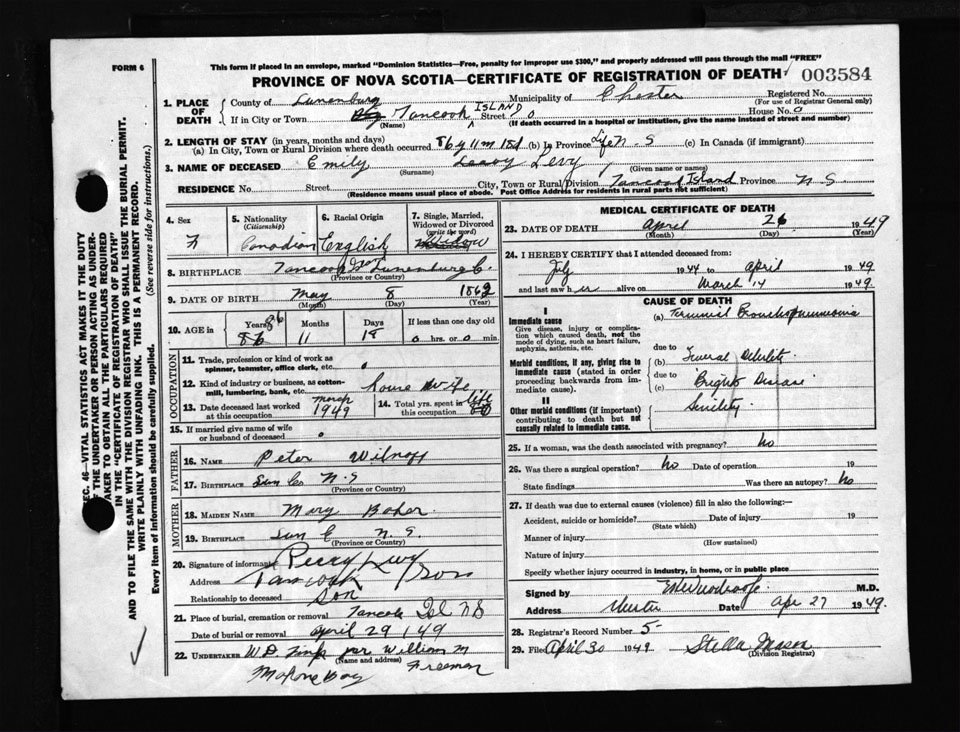 This form if placed in an envelope, marked "Dominion Statistics—Free, penalty for improper use $300," and properly addressed will pass through the mail "FREE"
FORM 6
PROVINCE OF NOVA SCOTIA—CERTIFICATE OF REGISTRATION OF DEATH
003584
1. PLACE OF DEATH
County of Lunenburg Municipality of Chester Registered No.
(For use of Registrar General only)
If in City or Town Tancook ISLAND Street 0 House No. 0
(Name) (If death occurred in a hospital or institution, give the name instead of street and number)
2. LENGTH OF STAY (in years, months and days)
(a) In City, Town or Rural Division where death occurred 86 y 11 m 18 d (b) in Province Life N.S (c) In Canada (if immigrant)
3. NAME OF DECEASED Emily Levy
(Surname) (Given name or names)
RESIDENCE No. Street City, Town or Rural Division Tancook Island Province N S.
(Residence means usual place of abode. Post Office Address for residents in rural parts not sufficient)
4. Sex
5. Nationality (Citizenship)
6. Racial Origin
7. Single, Married, Widowed or Divorced (write the word)
F Canadian English Widow
8. BIRTHPLACE Tancook Isd Lunenburg C.
(Province or Country)
9. DATE OF BIRTH May 8 1862
(Month) (Day) (Year)
10. AGE in
Years Months Days If less than one day old
86
86 11 18 0 hrs. or 0 min.
OCCUPATION
11. Trade, profession or kind of work as spinner, teamster, office clerk, etc.
12. Kind of industry or business, as cotton-mill, lumbering, bank, etc. House Wife
13. Date deceased last worked at this occupation March 1949
14. Total yrs. spent in this occupation life
15. If married give name of wife or husband of deceased 0
FATHER
16. NAME Peter Wilneff
17. BIRTHPLACE Lun Co N.S
(Province or Country)
MOTHER
18. MAIDEN NAME Mary Baker
19. BIRTHPLACE Lun C N.S.
(Province or Country)
20. Signature of informant Percy Levy
Address Tancook Son
Relationship to deceased Son
21. Place of burial, cremation or removal Tancook Isl NS
Date of burial or removal April 29 / 49
22. UNDERTAKER W.D. Zink per William M
(Name and address) Freeman
Mahone Bay
MEDICAL CERTIFICATE OF DEATH
23. DATE OF DEATH April 26 1949
(Month) (Day) (Year)
24. I HEREBY CERTIFY that I attended deceased from:
July 1944 to April 1949
and last saw her alive on March 14 1949.
CAUSE OF DEATH
I
Immediate cause
Give disease, injury, or complication which caused death, not the mode of dying, such as heart failure, asphyxia, asthenia, etc.
(a) Terminal Bronchopneumonia
due to
Morbid conditions, if any, giving rise to immediate cause (stated in order proceeding backwards from immediate cause).
(b) General Debility
due to
(c) Bright's Disease
II
Other morbid conditions (if important) contributing to death but not causally related to immediate cause.
Senility
25. If a woman, was the death associated with pregnancy? No
26. Was there a surgical operation? No Date of operation 19
State findings Was there an autopsy? No
27. If death was due to external causes (violence) fill in also the following:—
Accident, suicide or homicide? Date of injury 19
(State which)
Manner of injury
(How sustained)
Nature of injury
Specify whether injury occurred in industry, in home, or in public place
Signed by M.D.
Address Chester Date Apr 27 1949.
28. Registrar's Record Number 5-
29. Filed April 30 1949 Stella Mason
(Division Registrar)
SEC. 46—VITAL STATISTICS ACT MAKES IT THE DUTY
OF THE UNDERTAKER OR PERSON ACTING AS UNDERTAKER TO OBTAIN ALL THE PARTICULARS REQUIRED
IN THE "CERTIFICATE OF REGISTRATION OF DEATH"
AND TO FILE THE SAME WITH THE DIVISION REGISTRAR WHO SHALL ISSUE THE BURIAL PERMIT.
WRITE PLAINLY WITH UNFADING INK. THIS IS A PERMANENT RECORD.
Every item of information should be carefully supplied. (See reverse side for instructions.)